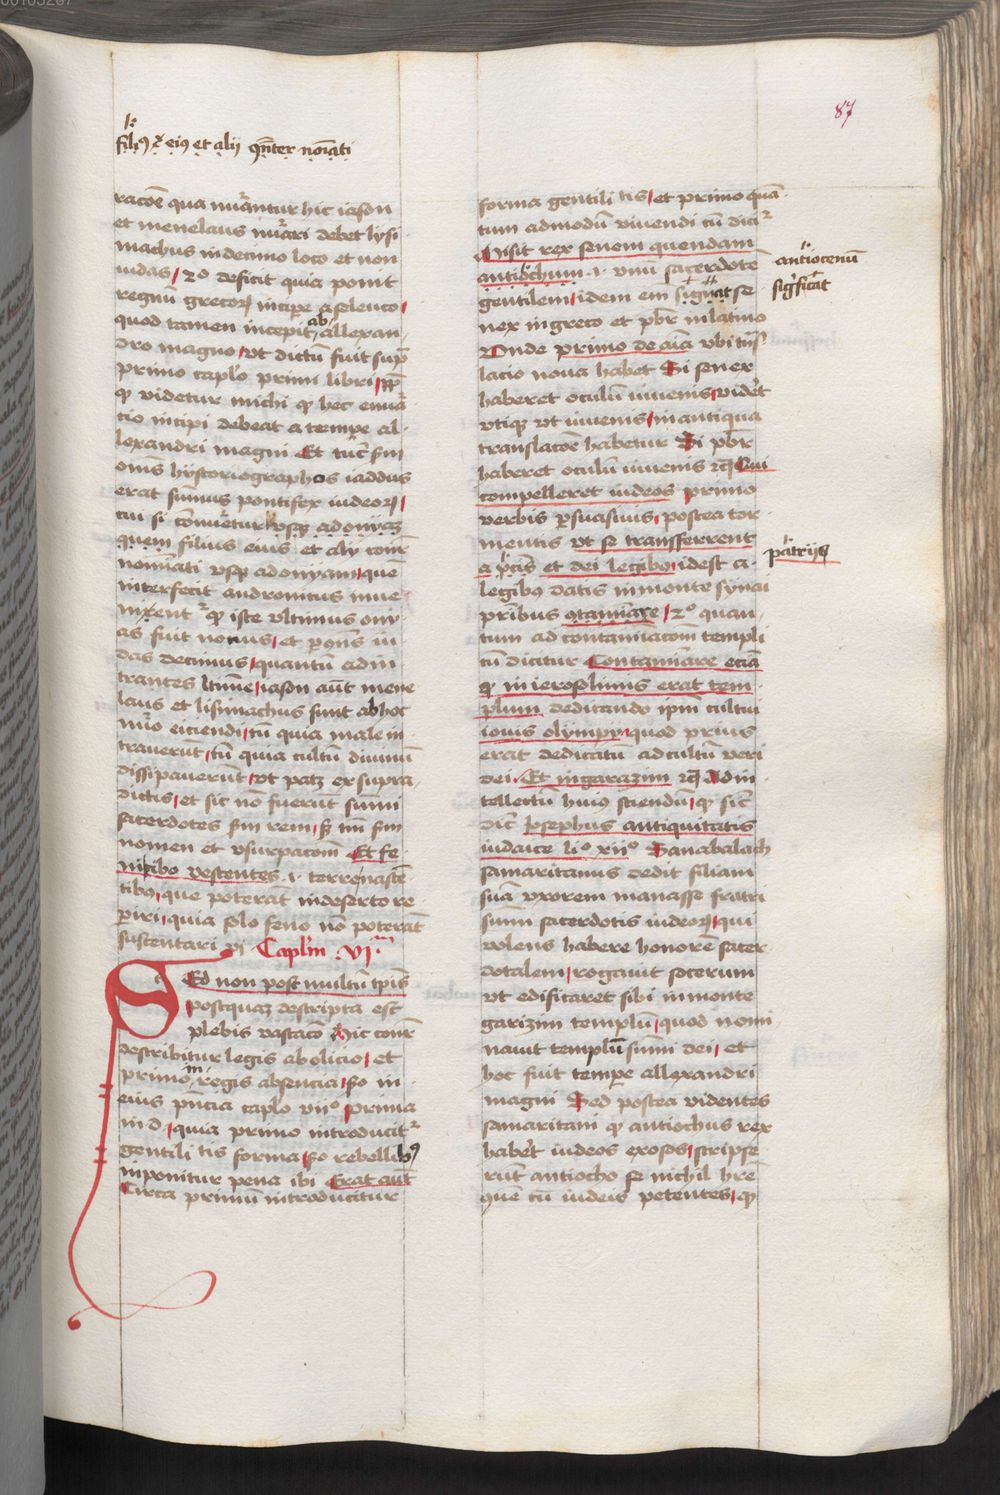 87
filiꝰ eiꝰ et alij
racōe qua nūrantur hic iason
et menelaus nūrari debet lysi
machus in decimo loco et non
iudas / 2o deficit quia ponit
regnū grecorꝝ incipe a seleuco /
quod tamen incepit ab allexan
dro magno / vt dictū fuit sup̄
primo caplo primi libri /
ꝙ videtur michi ꝙ hec enuā
cio incipi debeat a tempe al
lexandri magni Et tūc scd̄m
om̄s hystoriographos iaddus
erat sūmus pontifex iudeorꝝ /
cui si
quem filius eius et alij
nominati vsqꝫ ad onyam / quē
interfecit andronicus inue
ꝙ iste vltimus ony
as fuit nonus / et iu
das decimus / quantū ad in
trantes ltīme / iason aūt mene
laus et lisimachus sunt ab hoc
nūo eiciendi / tū quia male in
trauerūt / tū quia cultū diuinū
dissipauerūt / vt patꝫ ex supra
dictis / et sic nō fuerūt sūmi
sacerdotes scd̄m rem / sꝫ scd̄m
nomen et vsurpacōem Et fe
nicibo vestentes .i. terrenascē
tibꝰ / que poterāt in deserto re
periri / quia solo feno nō poterāt
sustentari Caplm̄ .vi.
Sed non post multū tp̄is
postquaꝫ descripta est
plebis vastacō Hic
describitur legis abolicio / et
primo in regis absencia / so in
eius pn̄cia caplo viio prima
in d / quia primo introducit̄
gentilitatis forma / so rebellibꝰ
imponitur pena ibi Erat aūt
Circa primū introducitur
forma gentilitatis / et primo quā
tum ad modū viuendi cū dicit̄
Misit rex senem quendam
antiochum .i. vnū sacerdotē
gentilem / idem em̄ signat se
nex in greco et pbr̄ in latino
Vnde primo de aīa vbi
lacio noua habet Si senex
haberet oculū iuuenis / videret
vtiqꝫ vt iuuenis / in antiqua
translacōe habetur Si pbr̄
haberet oculū iuuenis Qui
compelleret iudeos primo
verbis persuasiuis / postea tor
mentis vt se transferrent
a et dei legibꝰ / idest a
legibꝰ datis in monte synai
patribus / 2o quan
tum ad contaminacōem templi
cū dicitur Contaminare eciā
ꝙ in ierosolimis erat tem
plum dedicando ipm̄ cultui
iouis olympij / quod prius
erat dedicatū ad cultū veri
dei / Et in garazim Ad in
tellectū huiꝰ sciendū / ꝙ sic
dic̄ Josephus antiquitatis
iudaice lio xiio Sanabalach
samaritanus dedit filiam
suā vxorem manasse fratri
sūmi sacerdotis iudeorꝝ / qui
volens habere honorē sacer
dotalem / rogauit socerum
vt edificaret sibi in monte
garizim templū / quod nomi
nauit templū sūmi dei / et
hoc fuit tempore allexandri
magni Sed postea videntes
samaritani ꝙ antiochus rex
haberet iudeos exosos / scripse
rūt antiocho se nichil hr̄e
quē cū iudeis petentes / ꝙ
antiocenū
significat
patrijs